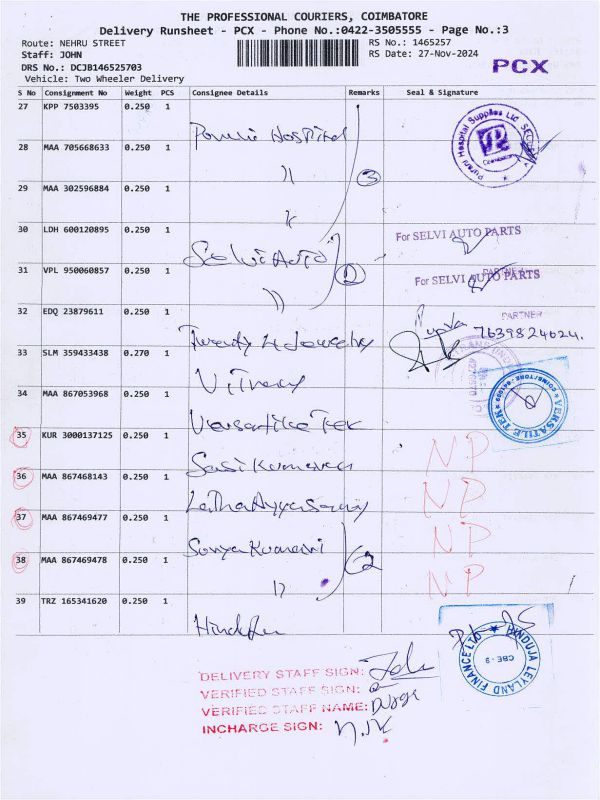 THE PROFESSIONAL COURIERS, COIMBATORE
Delivery Runsheet - PCX - Phone No.:0422-3505555 - Page No.:3
Route: NEHRU STREET RS No.: 1465257
Staff: JOHN RS Date: 27-Nov-2024
DRS No.: DCJB146525703 PCX
Vehicle: Two Wheeler Delivery
S No Consignment No Weight PCS Consignee Details Remarks Seal & Signature
27 KPP 7503395 0.250 1 Hospital
28 MAA 705668633 0.250 1 〃 3
29 MAA 302596884 0.250 1 〃
30 LDH 600120895 0.250 1 Selvi Auto For SELVI AUTO PARTS
31 VPL 950060857 0.250 1 〃 For SELVI AUTO PARTS
PARTNER
32 EDQ 23879611 0.250 1 Twenty 4 Jewelry 7639824624.
33 SLM 359433438 0.270 1
34 MAA 867053968 0.250 1 Versatile Tek VERSATILE TEK
35 KUR 3000137125 0.250 1 Sasikumaran NP
36 MAA 867468143 0.250 1 Latha Ayyasamy NP
37 MAA 867469477 0.250 1 Surya Kumari NP
38 MAA 867469478 0.250 1 〃 2 NP
39 TRZ 165341620 0.250 1
HINDUJA LEYLAND FINANCE LTD
CBE-9
DELIVERY STAFF SIGN:
VERIFIED STAFF SIGN:
VERIFIED STAFF NAME:
INCHARGE SIGN: